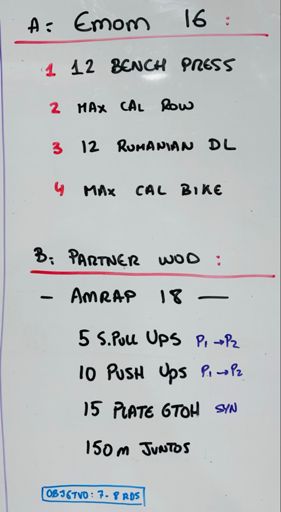 A: EMOM 16 :
1 12 BENCH PRESS
2 MAX CAL ROW
3 12 RUMANIAN DL
4 MAX CAL BIKE
B: PARTNER WOD :
— AMRAP 18 —
5 S.PULL UPS P1 → P2
10 PUSH UPS P1 → P2
15 PLATE GTOH SYN
150m JUNTOS
OBJETIVO: 7-8 RDS